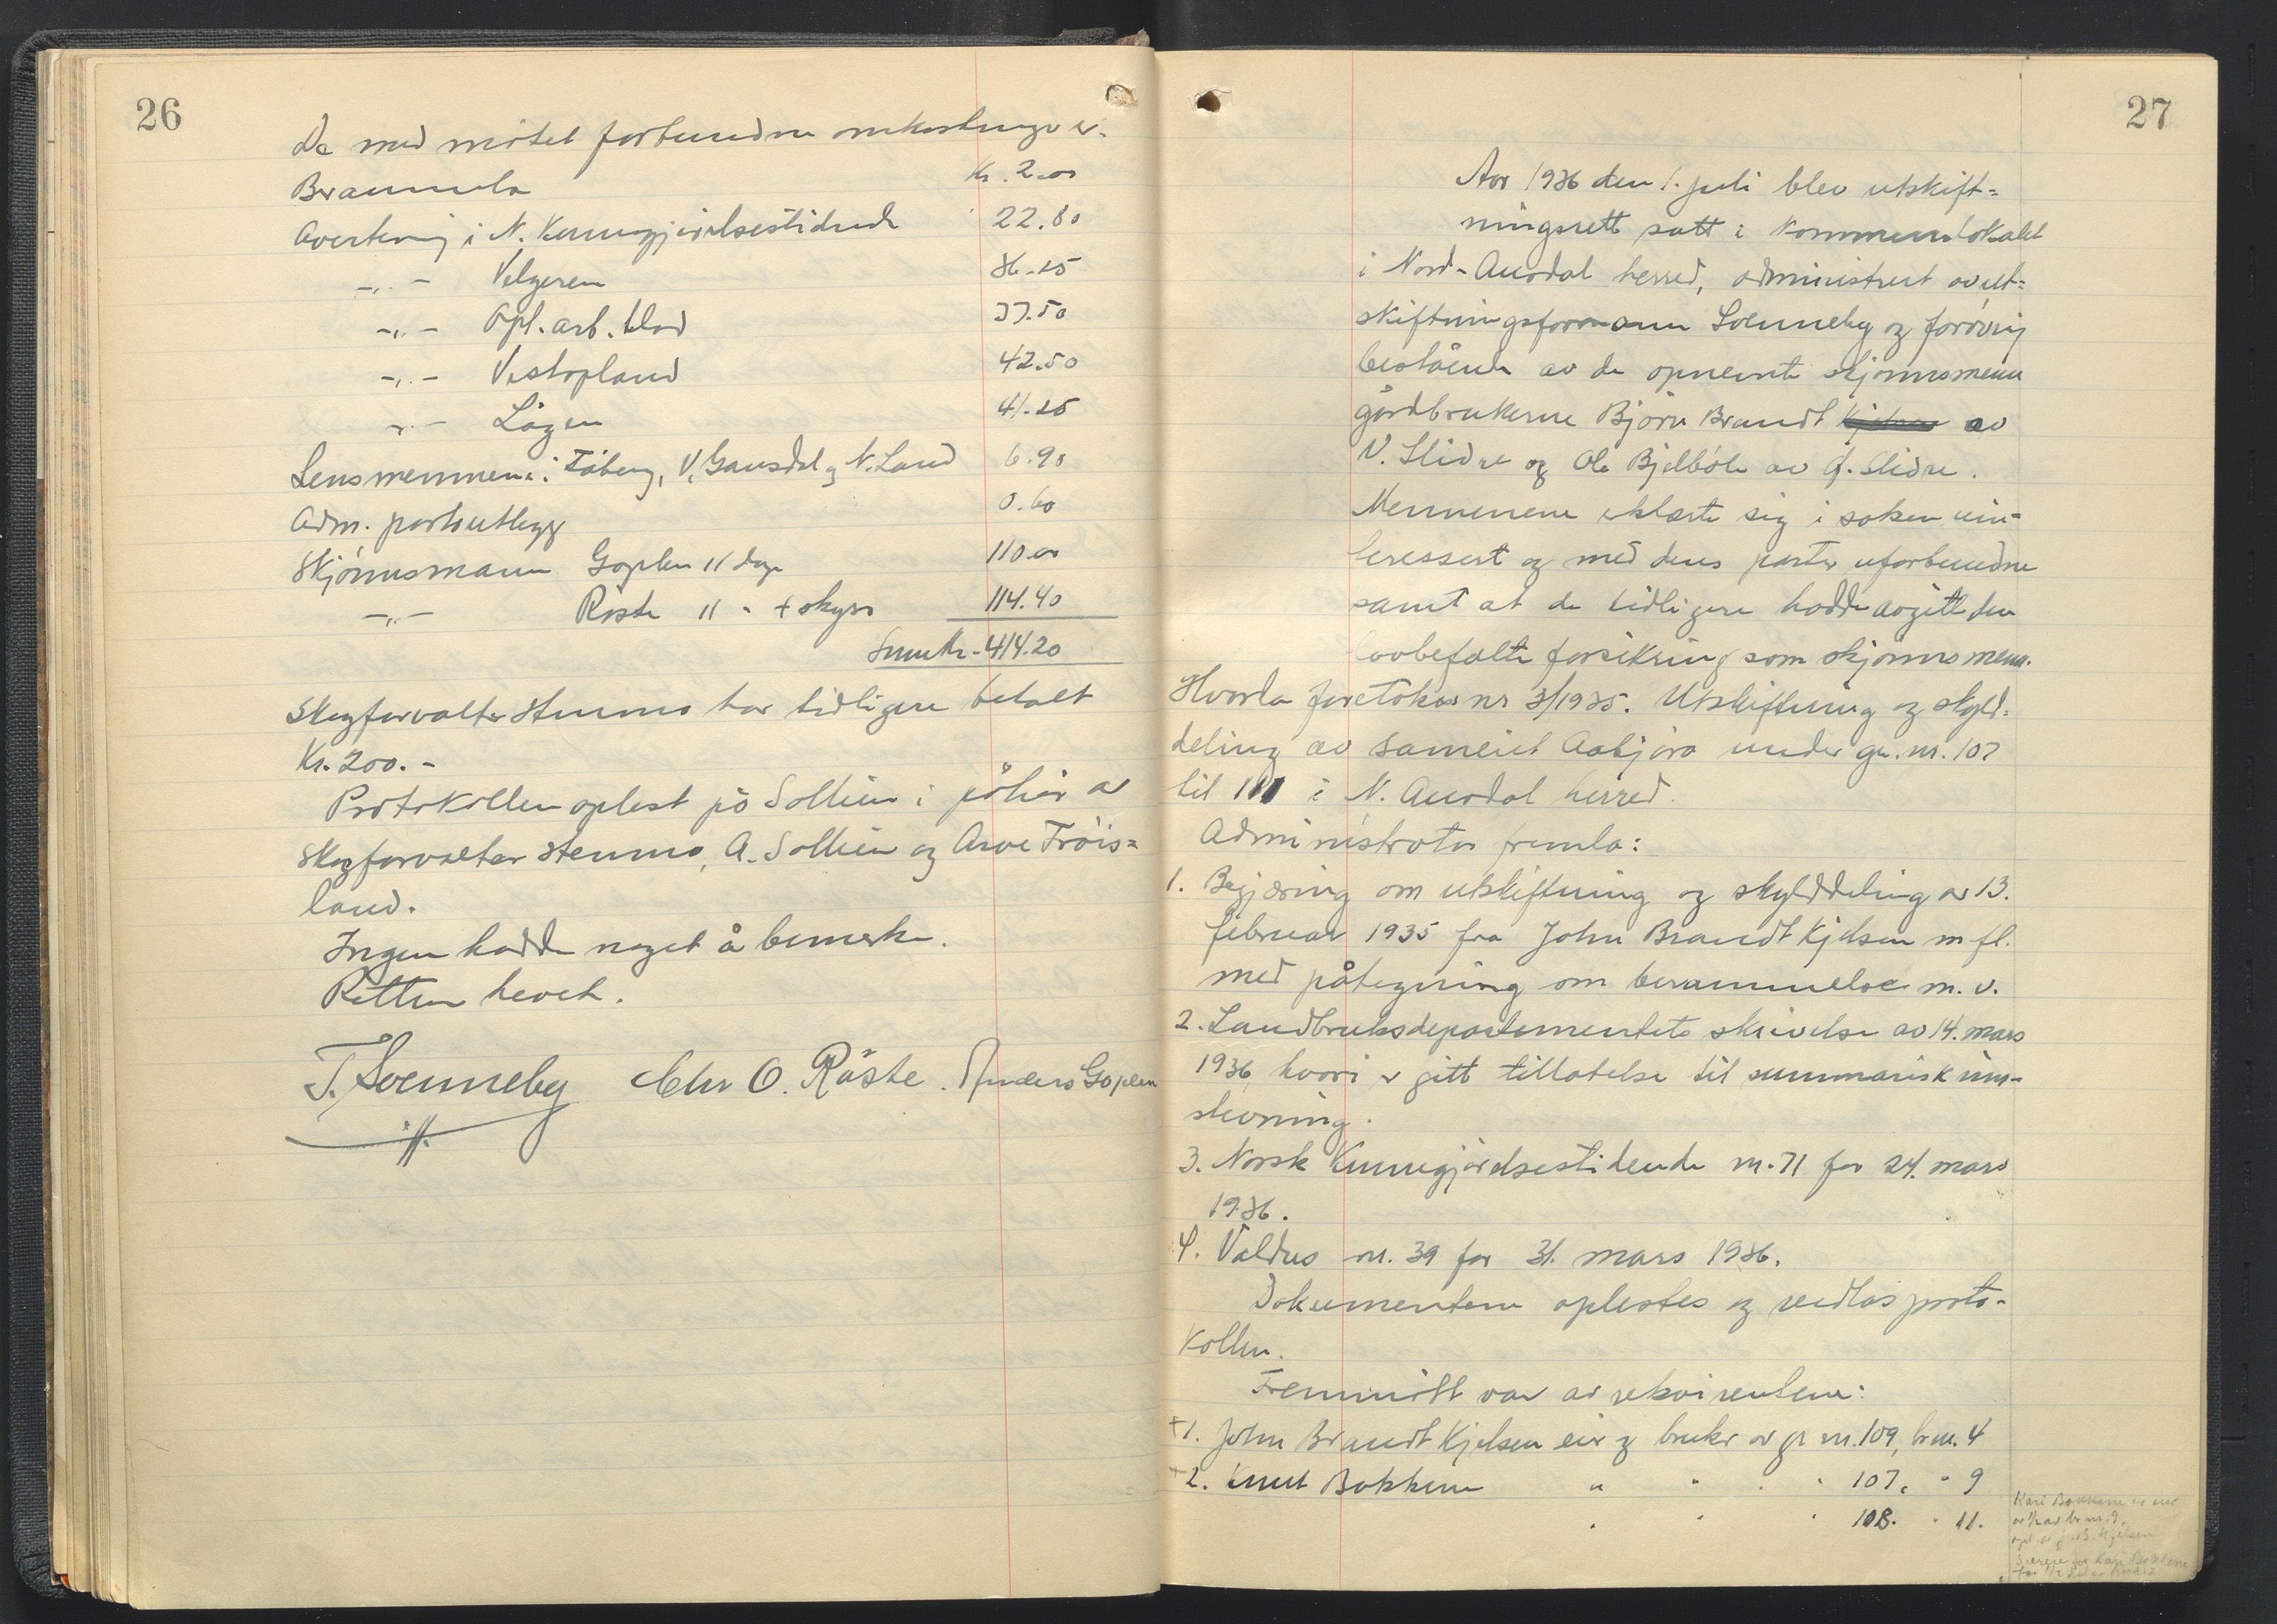 26
De med møtet forbundne omkostninger er:
Berammelse Kr. 2.00
Avertering i N. Kunngjørelsestidende 22.80
-"- Velgeren 36.25
-"- Opl. arb. blad 37.50
-"- Vestopland 42.50
-"- Lågen 41.25
Lensmennene i Fåberg, V. Gausdal og N. Land 6.90
Adm. portoutlegg 0.60
Skjønnsmann Goplen 11 dage 110.00
-"- Røste 11 " + skyss 114.40
Sum Kr. 414.20
Skogforvalter Stenmo har tidligere betalt
Kr. 200.-
Protokollen oplest på Sollien i påhør av
skogforvalter Stenmo, A. Sollien og Arve Frøis=
land.
Ingen hadde noget å bemerke.
Retten hevet.
T. Svenneby Chr O. Røste. Anders Goplen
27
Aar 1936 den 1. juli blev utskift=
ningsrett satt i kommunelokalet
i Nord-Aurdal herred, administrert av ut=
skiftningsformann Svenneby og forøvrig
bestående av de opnevnte skjønnsmenn
gårdbrukerne Bjørn Brandt av
V. Slidre og Ole Bjelbøle av Ø. Slidre.
Mennene erklærte sig i saken uin-
teressert og med dens parter uforbundne
samt at de tidligere hadde avgitt den
lovbefalte forsikring som skjønnsmenn.
Hvorda foretokes nr 3/1935. Utskiftning og skyld-
deling av sameiet Aabjøra under gr. nr. 107
til 111 i N. Aurdal herred.
Administrator fremla:
1. Begjæring om utskiftning og skylddeling av 13.
februar 1935 fra John Brandt Kjelsen m fl.
med påtegning om berammelse m. v.
2. Landbruksdepartementets skrivelse av 14. mars
1936 hvori er gitt tillatelse til summarisk inn-
stevning.
3. Norsk Kunngjørelsestidende nr. 71 for 24. mars
1936.
4. Valdres nr. 39 for 31. mars 1936.
Dokumentene oplestes og vedlas proto-
kollen.
Fremmøtt var av rekvirentene:
+1. John Brandt Kjelsen eier og bruker av gr nr. 109, br nr. 4
+2. Knut Bakkene " " " 107. " 9
" " " 108. " 11.
Kari Bakkene er eier
av 1/2 av br nr. 9.